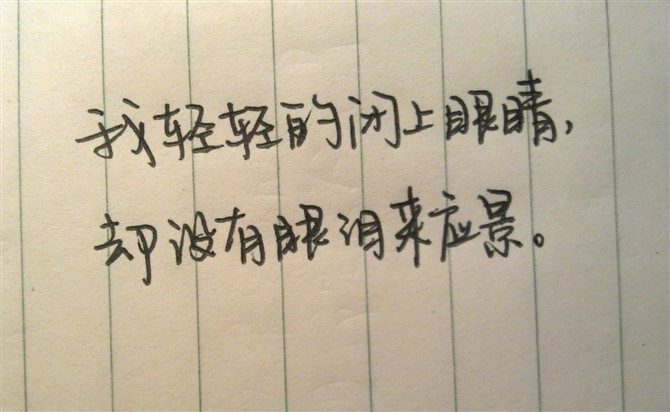 我轻轻的闭上眼睛，
却没有眼泪来应景。